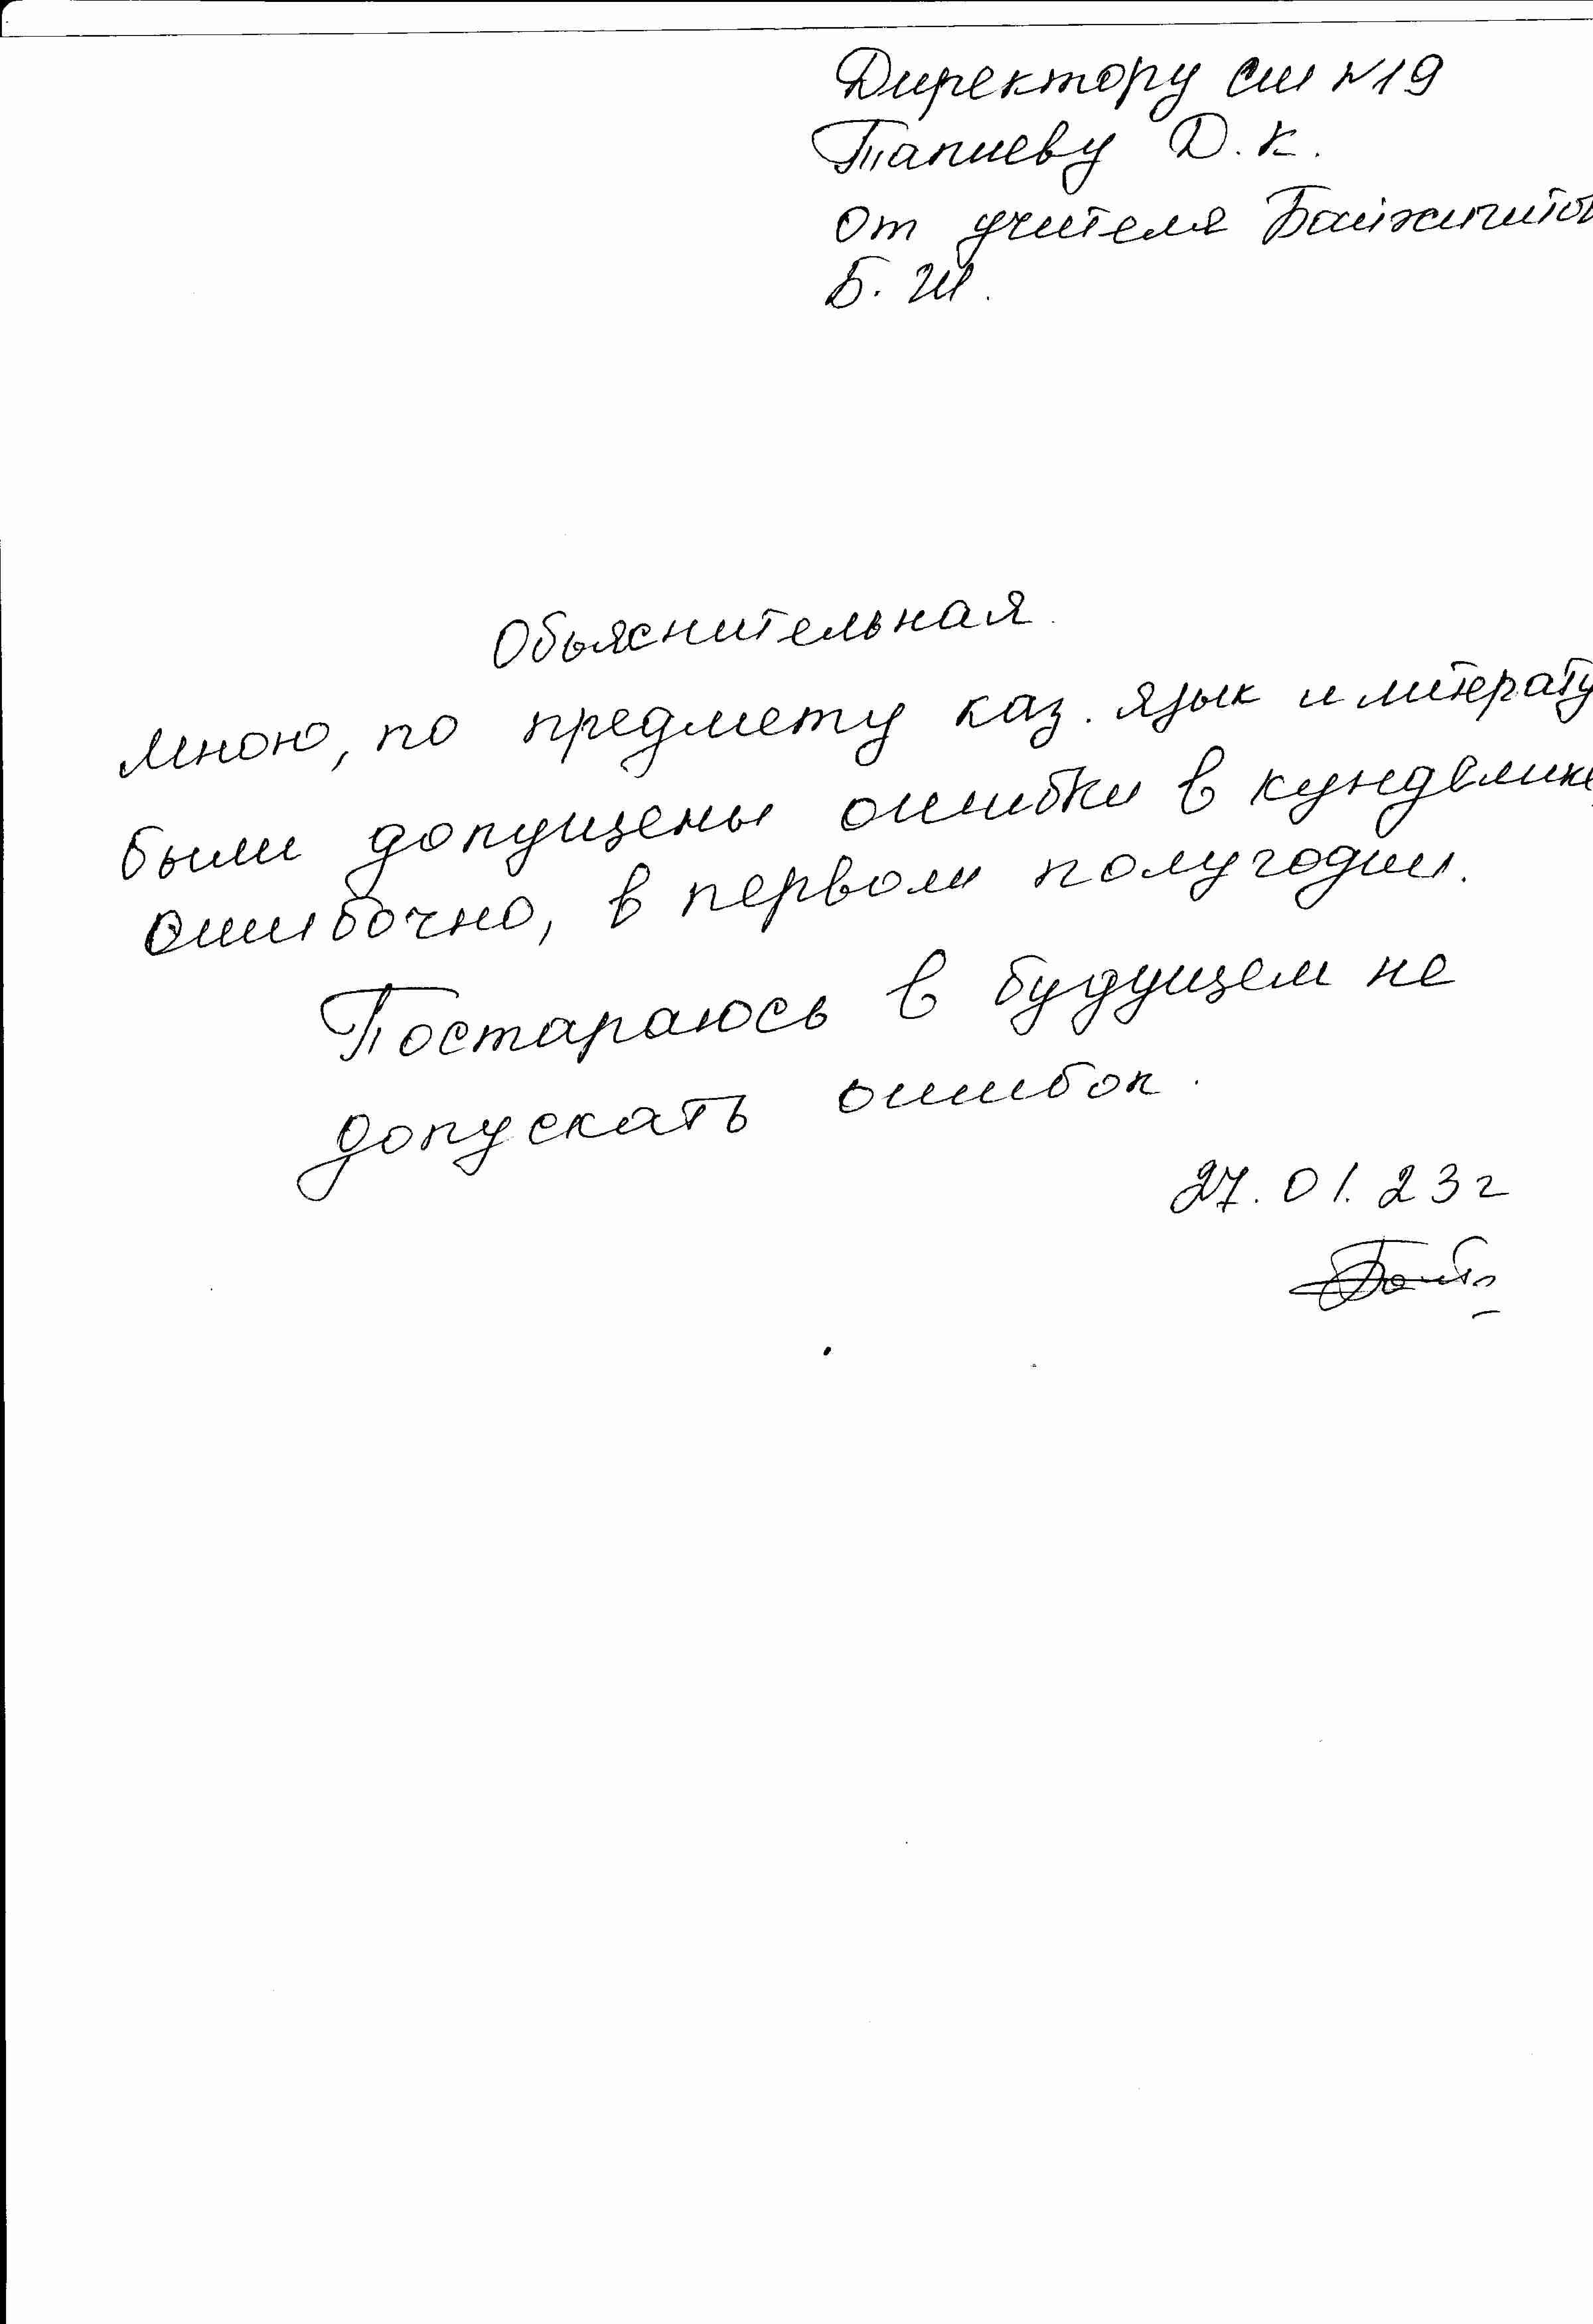 Директору сш №19
Тапиеву Д.К.
от учителя Байжигитов
Б. Ш.
Обьяснительная.
Мною, по предмету каз. язык и литерату
были допущены ошибки в кунделике
ошибочно, в первом полугодии.
Постараюсь в будущем не
допускать ошибок.
27.01.23г